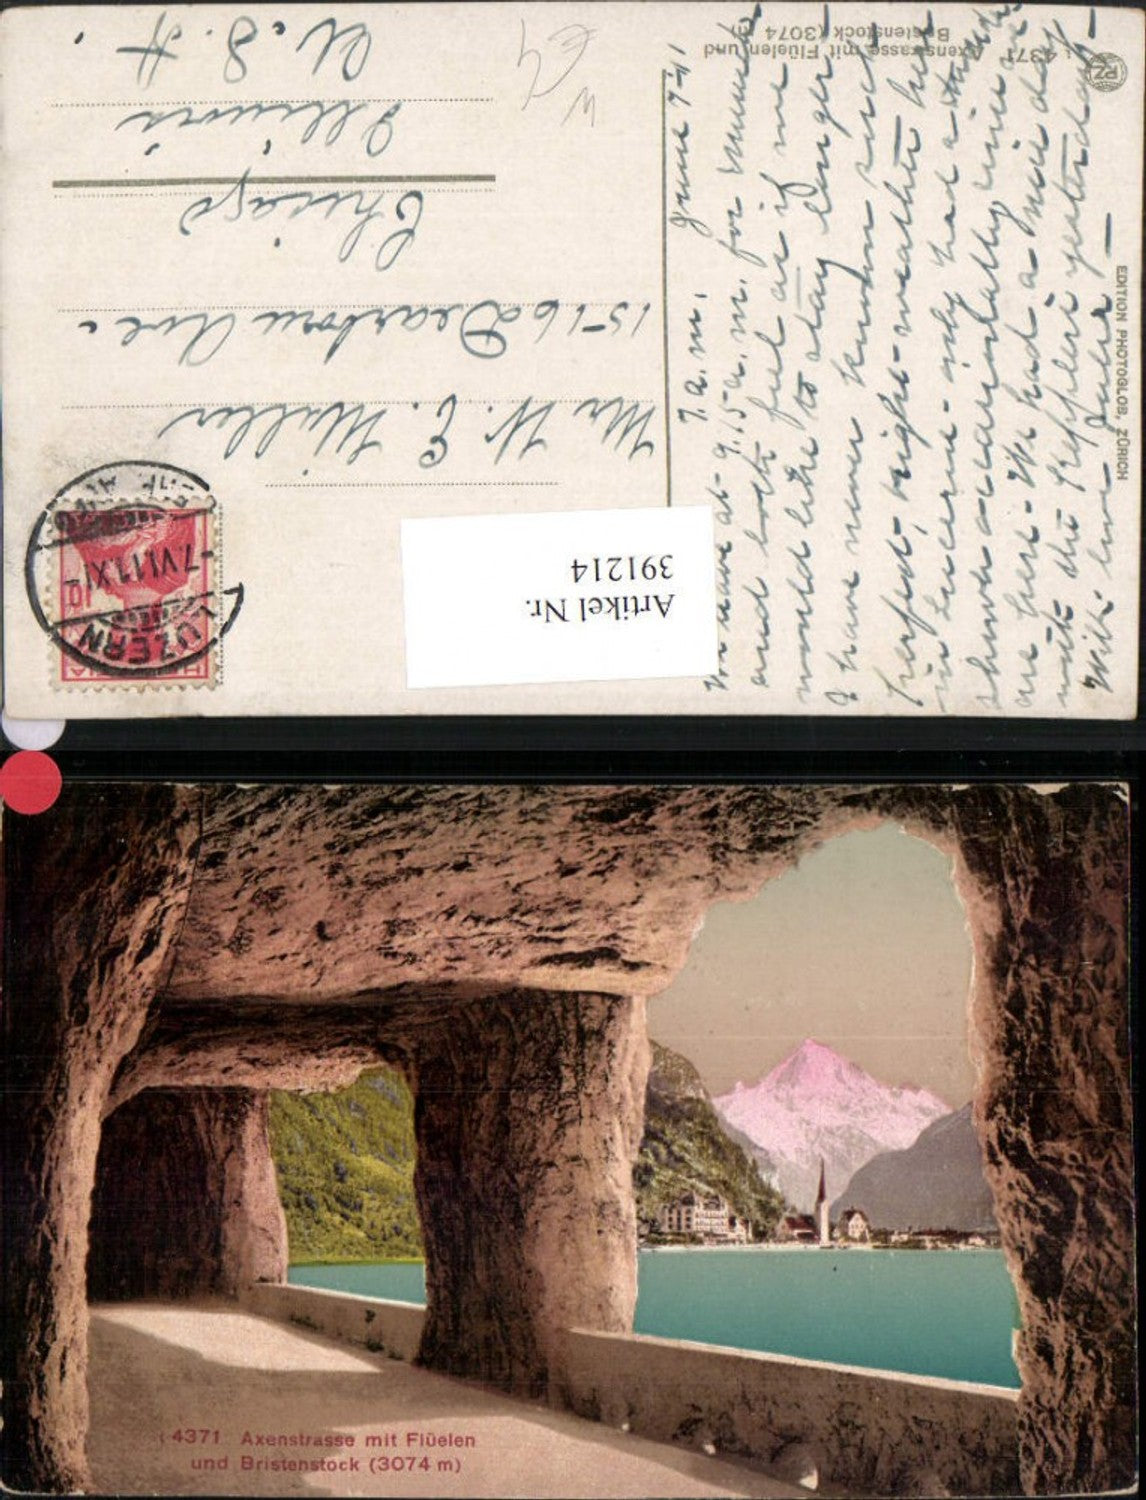 4371 Axenstrasse mit Flüelen und
Bristenstock (3074 m)
PZ
EDITION PHOTOGLOB, ZÜRICH
June 7-11
7 a.m.
We leave at 9.15 a.m. for
and both feel as if we
would like to stay longer
I have never known such
perfect, bright weather here
in Lucerne - only had a
shower occasionally since we
are here - We had a nice day
with the Kepplers yesterday -
With love
HELVETIA
10
LUZERN
7.VI.11.XI
Mr W. E. Miller
1516 Dearborn Ave.
Chicago
Illinois
U. S. A.
Artikel Nr.
391214
4371 Axenstrasse mit Flüelen
und Bristenstock (3074 m)